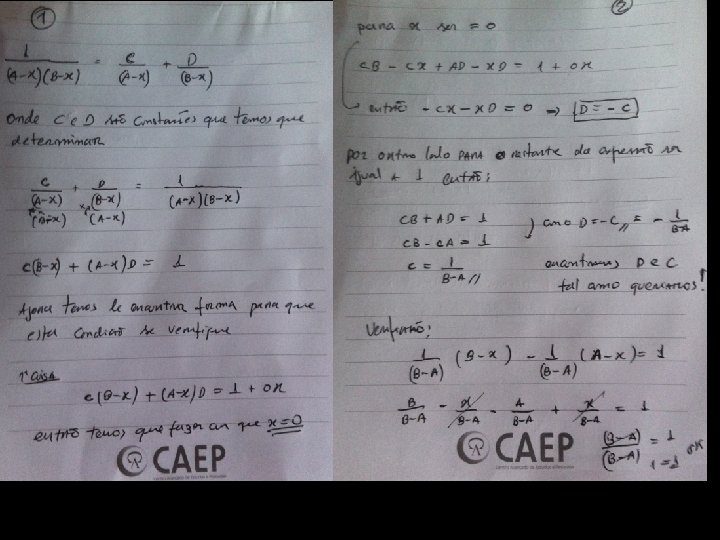 1
1/(A-x)(B-x) = C/(A-x) + D/(B-x)
onde C e D são constantes que temos que
determinar
C/(A-x) + D/(B-x) = 1/(A-x)(B-x)
(B-x) (A-x)
C(B-x) + (A-x)D = 1
Agora temos de encontrar forma para que
esta condição se verifique
1º caso
C(B-x) + (A-x)D = 1 + 0x
então temos que fazer com que x=0
CAEP
2
para x ser = 0
CB - Cx + AD - xD = 1 + 0x
então - Cx - xD = 0 => D = - C
Por outro lado para o restante da expressão ser
igual a 1 então;
CB + AD = 1 ) como D = -C,, = - 1/B-A
CB - CA = 1
C = 1/B-A // encontramos D e C
tal como queríamos!
Verificando:
1/(B-A) (B-x) - 1/(B-A) (A-x) = 1
B/B-A - x/B-A - A/B-A + x/B-A = 1
(B-A)/(B-A) = 1
1 = 1 OK
CAEP